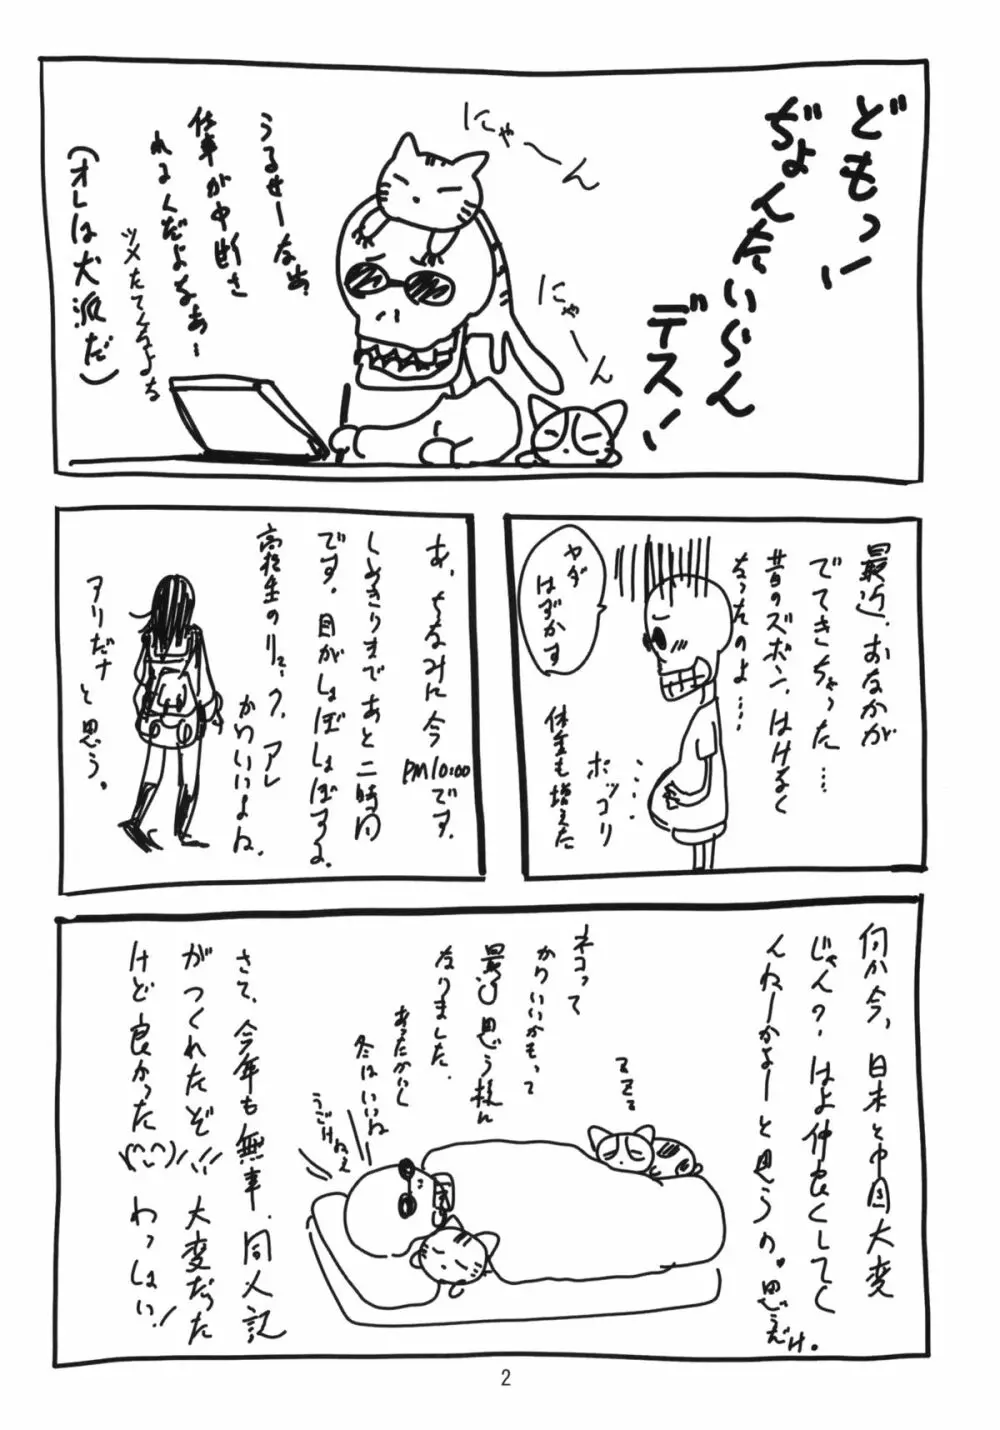 どもっ!
ぢょんたいらん
デス!
にゃーん
にゃーん
うるせーなぁ
仕事が中断さ
れるんだよなぁー
ツメたてんなよな
(オレは犬派だ)
最近、おなかが
でてきちゃった…
昔のズボン、はけなく
なったのよ…
ヤダ
はずかす
ポッコリ
体重も増えた
あ、ちなみに今
PM10:00です。
しめきりまであと二時間
です。目がしょぼしょぼするよ
高校生のリュック、アレ
かわいいよね。
アリだナ
と思う。
何か今、日本と中国大変
じゃん?はよ仲良くしてく
んねーかよーと思うの。思うだけ。
ネコって
かわいいかもって
最近思う様に
なりました。
あったかいし
冬はいいね
うごけねぇ
さて、今年も無事、同人誌
がつくれたぞ!!大変だった
けど良かった(^-^)/
わっしょい!
2